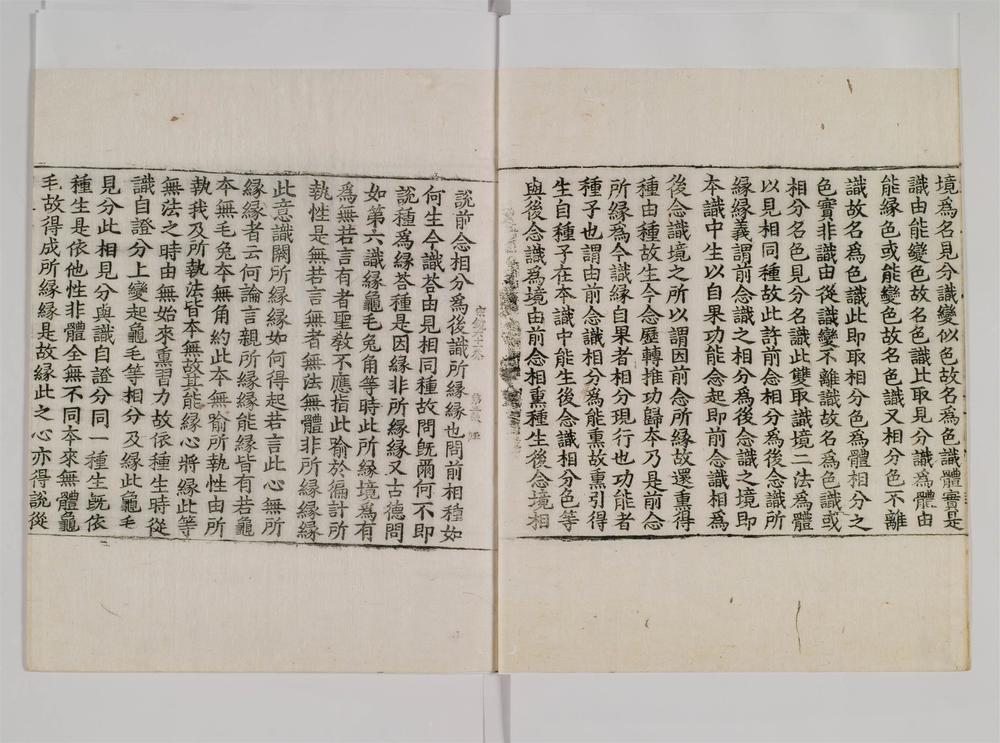 境爲名見分識變似色故名爲色識體實是
識由能變色故名色識比取見分識爲體由
能緣色或能變色故名色識又相分色不離
識故名爲色識此即取相分色爲體相分之
色實非識由從識變不離識故名爲色識或
相分名色見分名識此雙取識境二法爲體
以見相同種故此許前念相分爲後念識所
緣緣義謂前念識之相分爲後念識之境即
本識中生以自果功能念起即前念識相爲
後念識境之所以謂因前念所緣故還熏得
種由種故生今念歷轉推功歸本乃是前念
所緣爲今識緣自果者相分現行也功能者
種子也謂由前念識相分爲能熏故熏引得
生自種子在本識中能生後念識相分色等
與後念識爲境由前念相熏種生後念境相
說前念相分爲後識所緣緣也問前相種如
何生今識荅由見相同種故問旣爾何不即
說種爲緣荅種是因緣非所緣緣又古德問
如第六識緣龜毛兔角等時此所緣境爲有
爲無若言有者聖敎不應指此喻於徧計所
執性是無若言無者無法無體非所緣緣
此意識闕所緣緣如何得起若言此心無所
緣緣者云何論言親所緣緣能緣皆有若龜
本無毛兔本無角約此本無喻所執性由所
執我及所執法皆本無故其能緣心將緣此等
無法之時由無始來熏習力故依種生時從
識自證分上變起龜毛等相分及緣此龜毛
見分此相見分與識自證分同一種生旣依
種生是依他性非體全無不同本來無體龜
毛故得成所緣緣是故緣此之心亦得說從